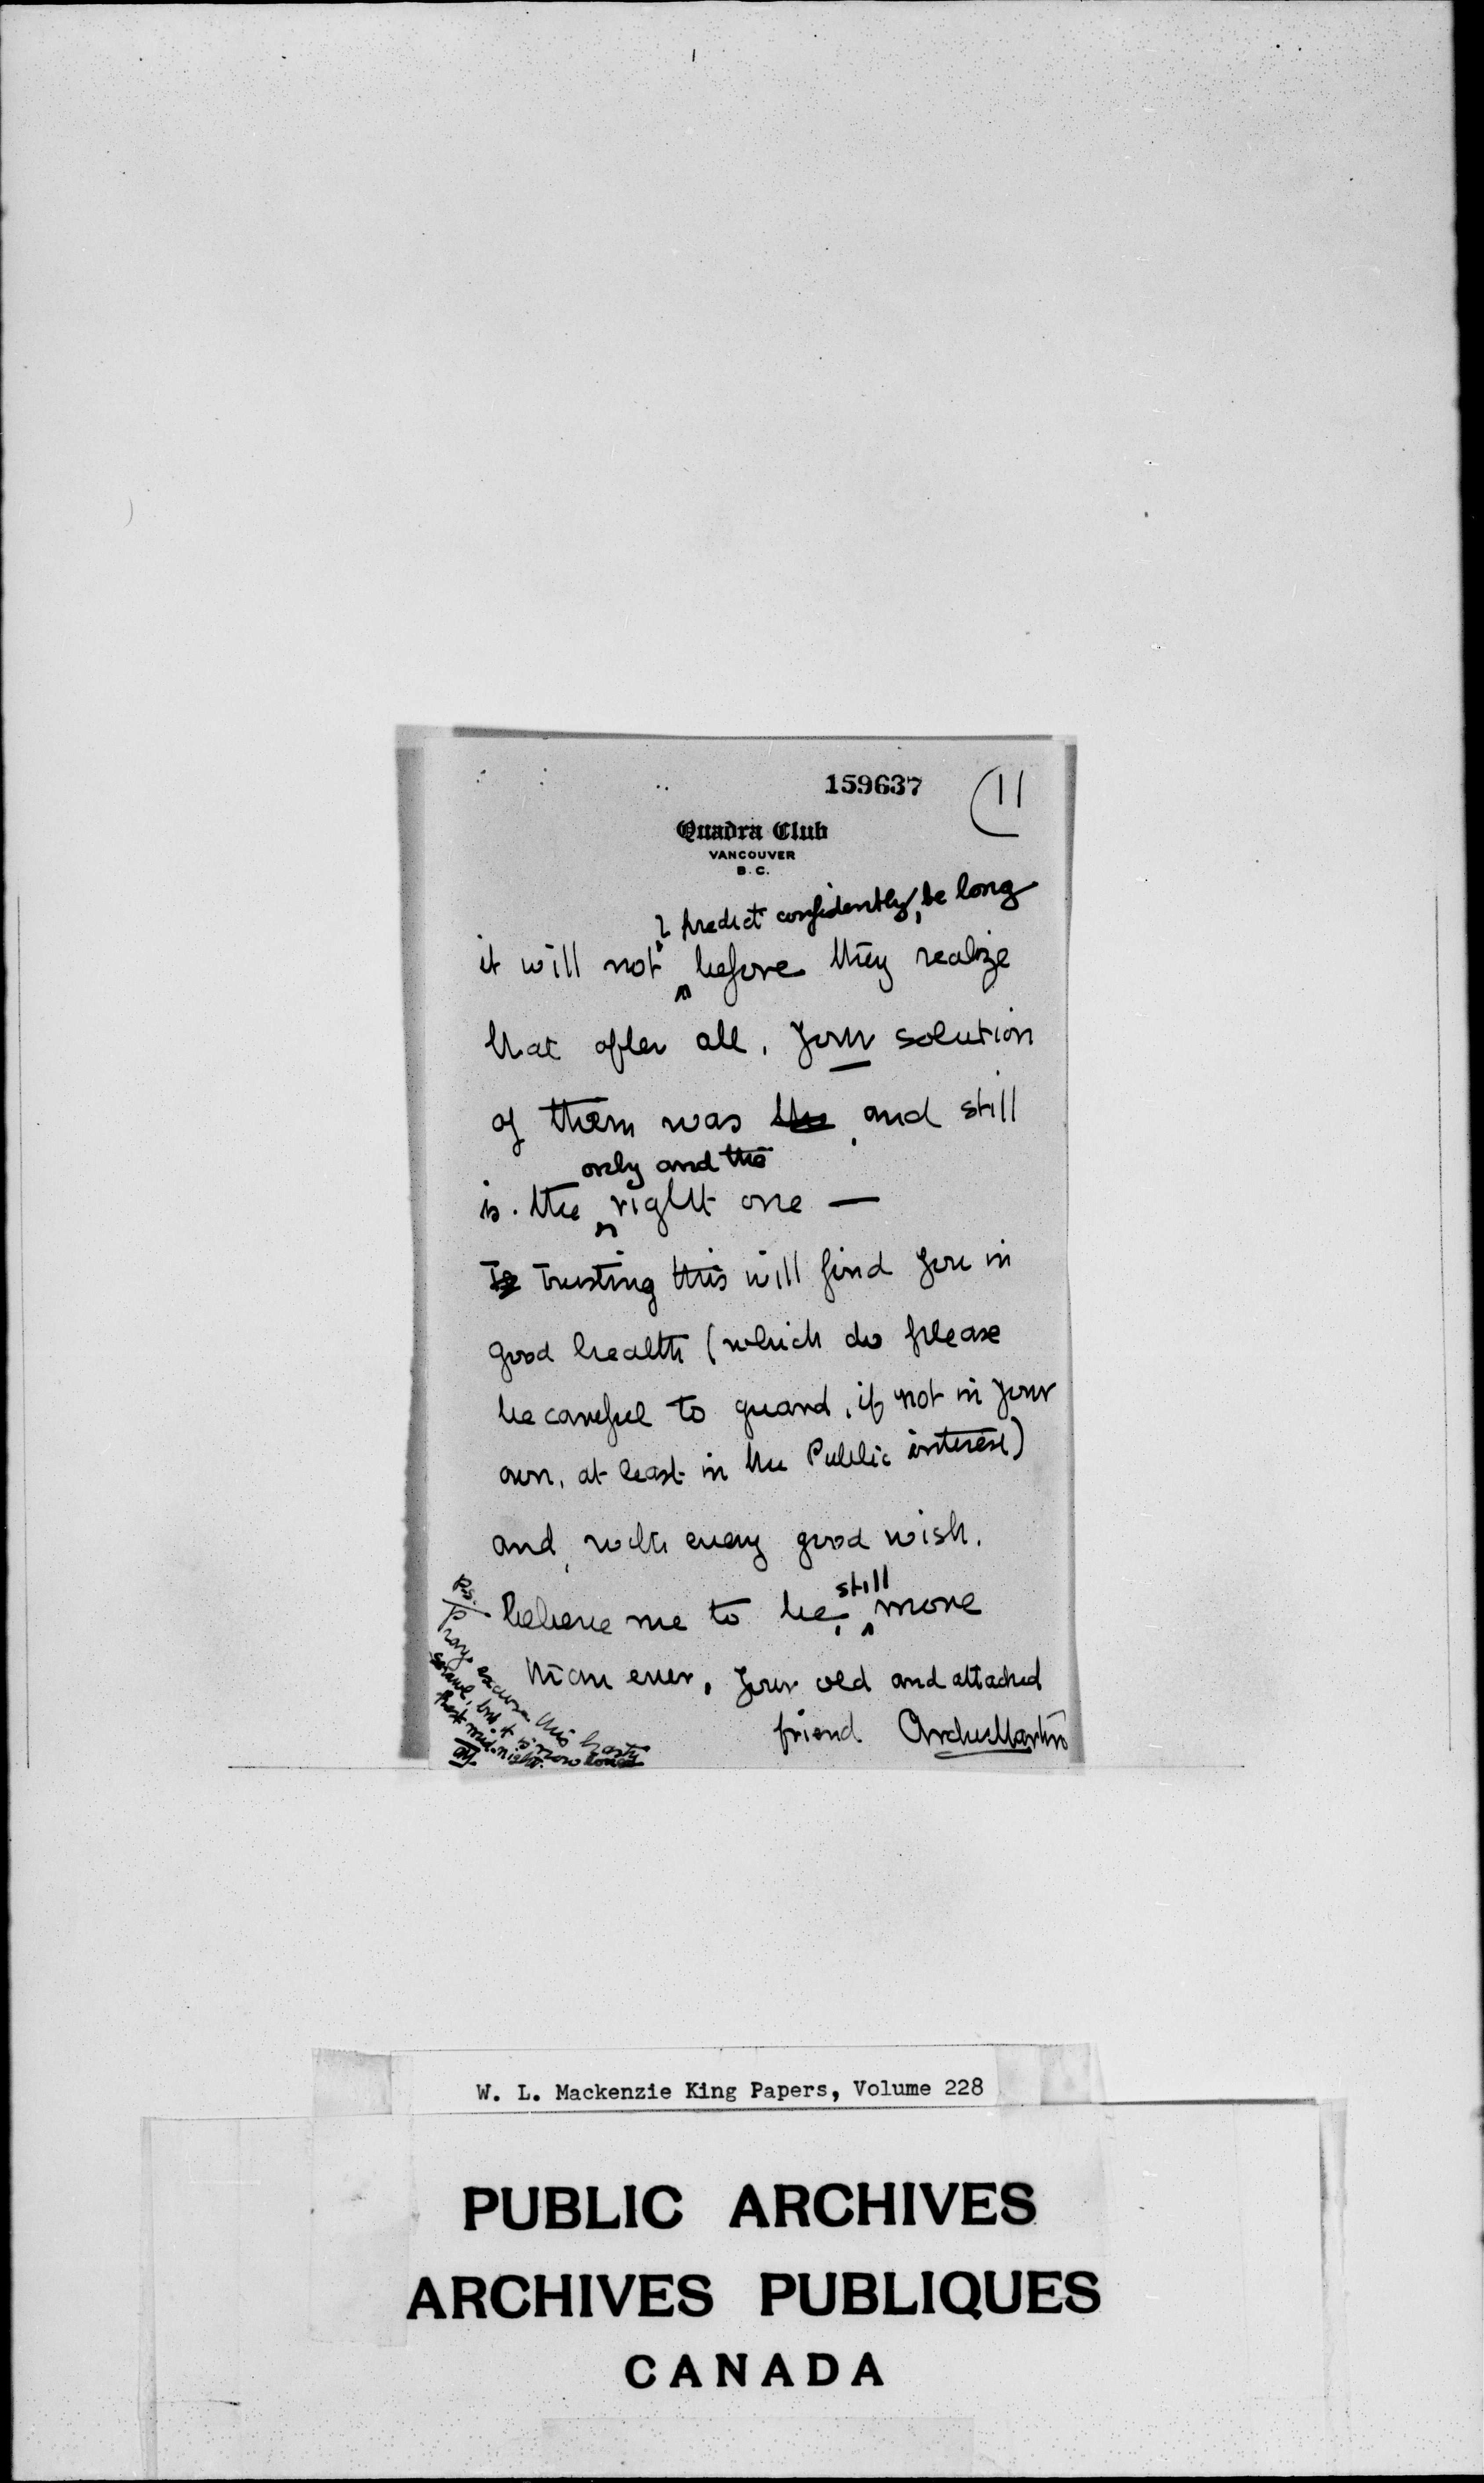 159637
(11
Quadra Club
VANCOUVER
B.C.
, I predict confidently, be long
it will not before they realize
that after all, your solution
of them was the, and still
only and the
is, the right one —
To Trusting this will find you in
good health (which do please
be careful to guard, if not in your
own, at least in the Public interest)
and, with every good wish,
still
believe me to be, more
than ever, your old and attached
friend ArcherMartin
P.S.
Pray excuse this hasty
scrawl, but it is now
past mid-night.
AM
W. L. Mackenzie King Papers, Volume 228
PUBLIC ARCHIVES
ARCHIVES PUBLIQUES
CANADA